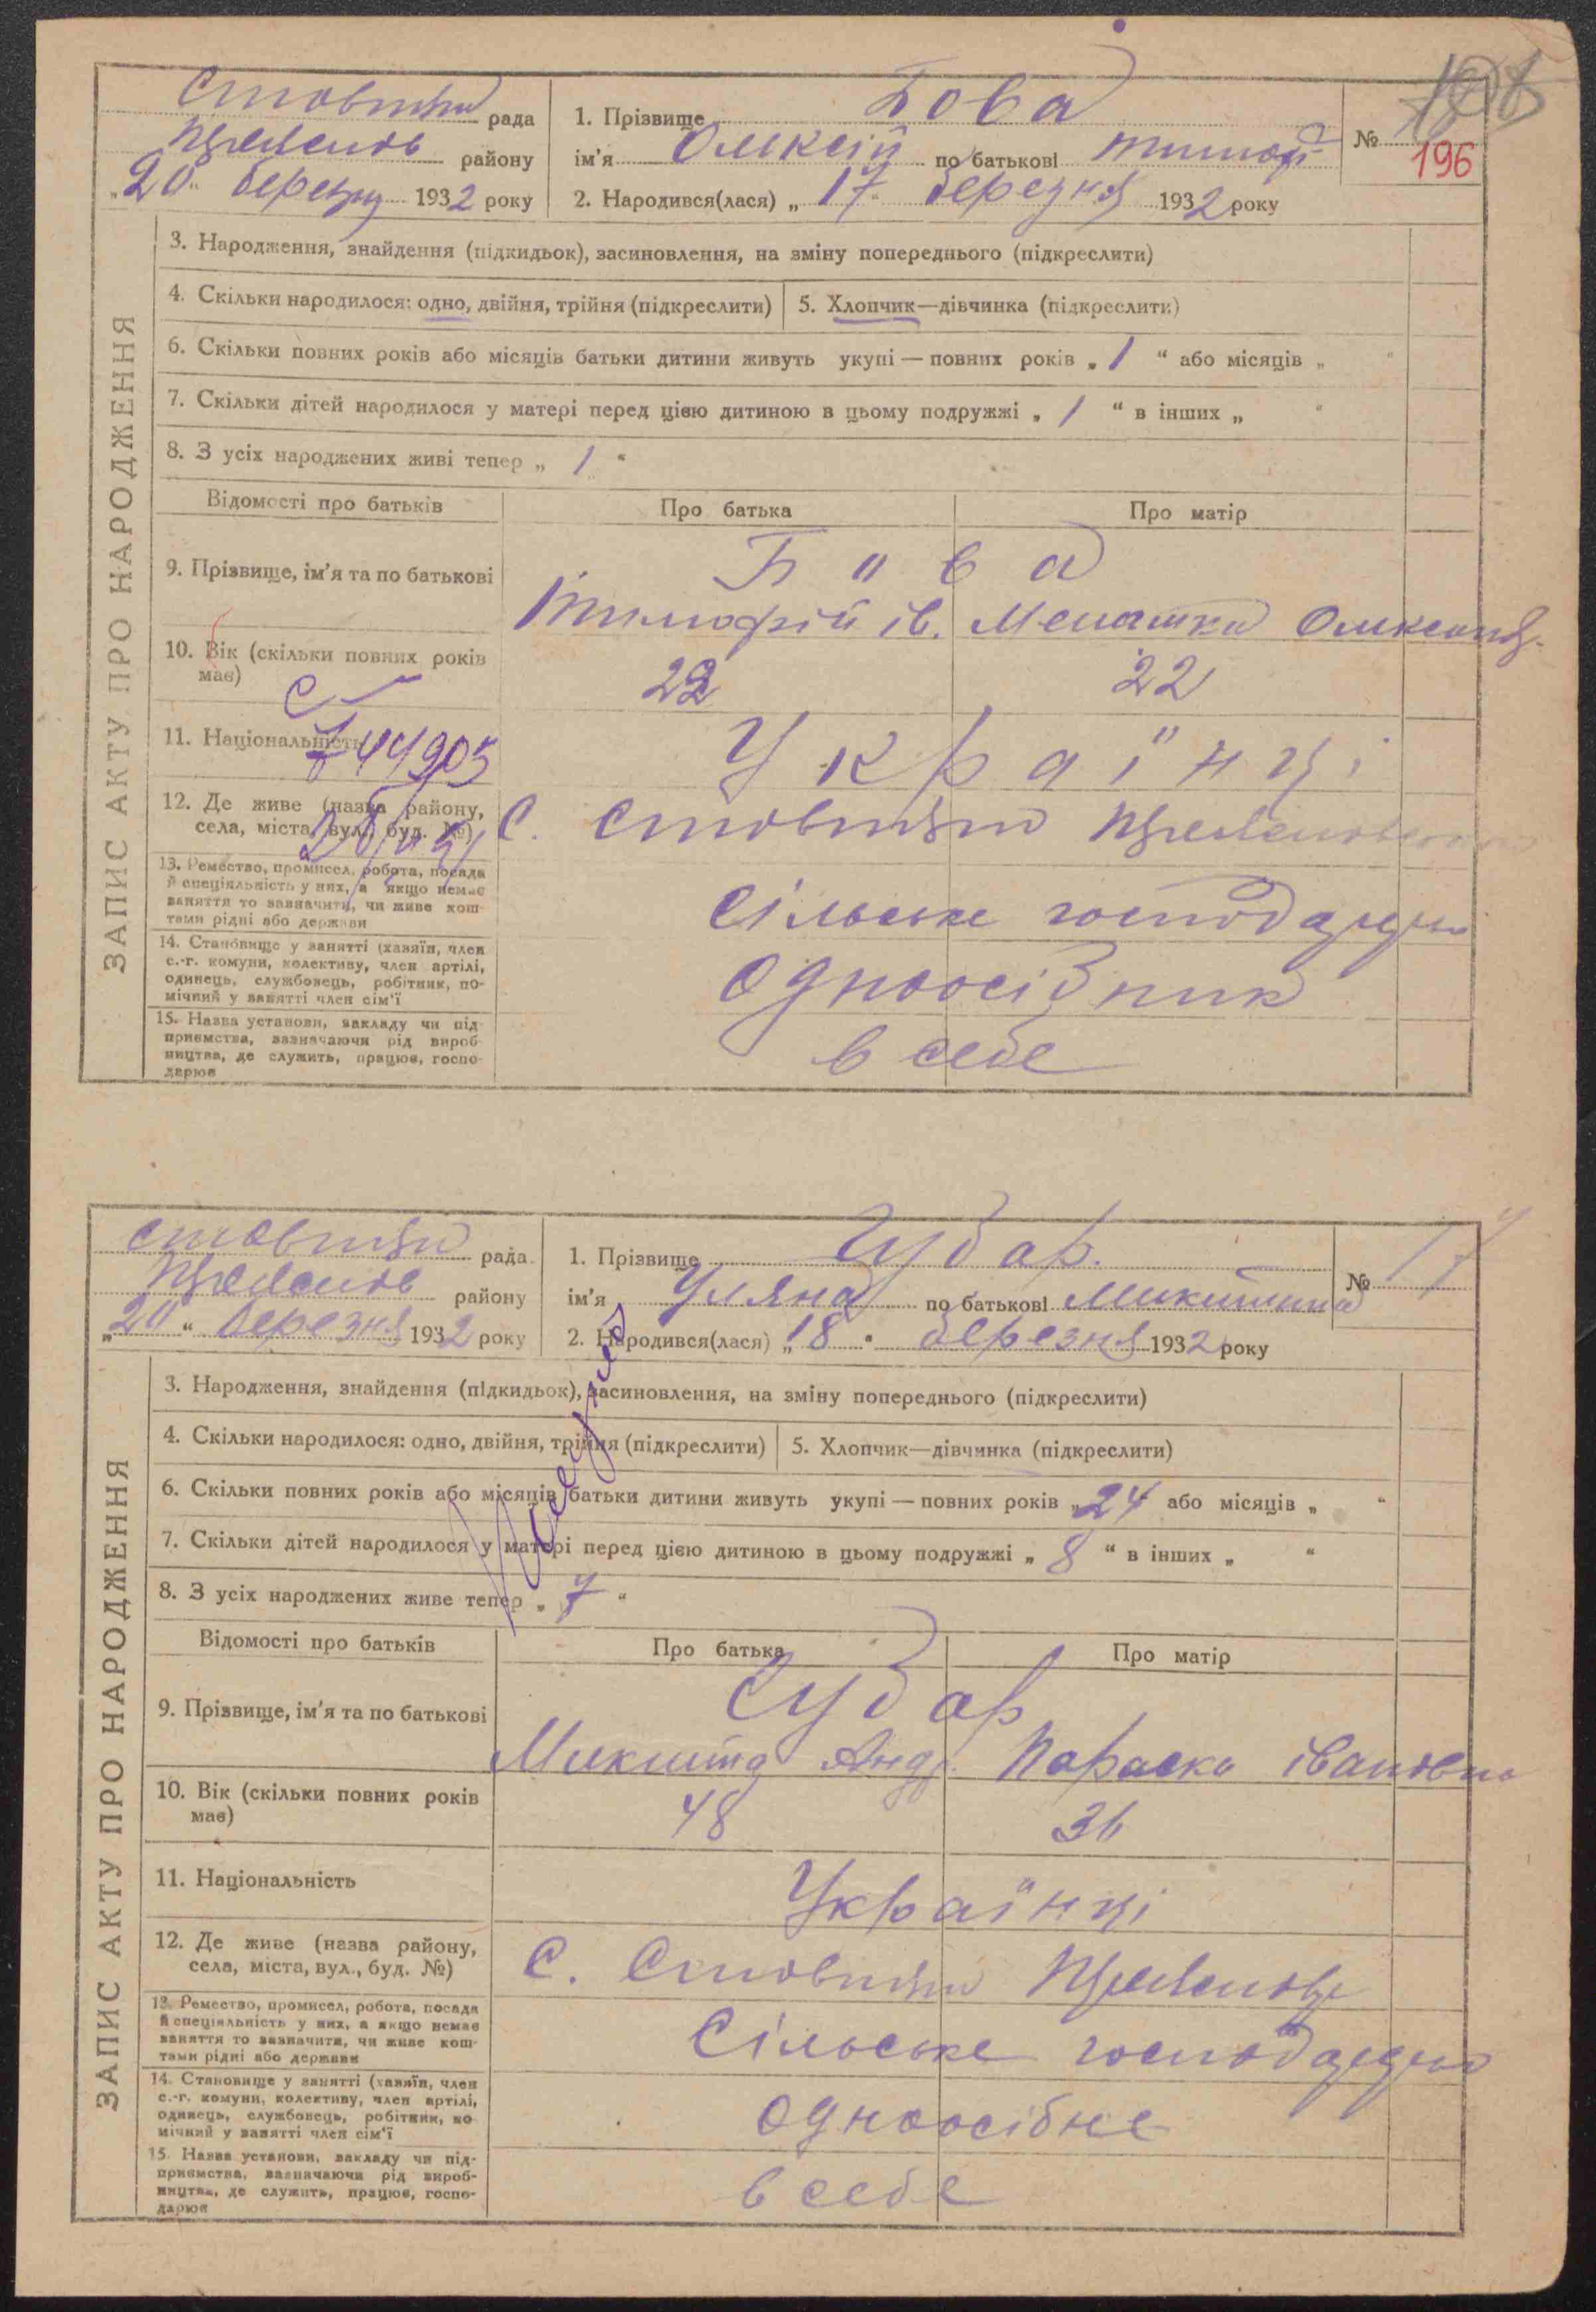 рада
району
„20“ березня 1932 року
1. Прізвище Бова
ім'я Олексій по батькові Тимоф
2. Народився(лася) „ 17 березня 1932 року
№
196
ЗАПИС АКТУ ПРО НАРОДЖЕННЯ
3. Народження, знайдення (підкидьок), засиновлення, на зміну попереднього (підкреслити)
4. Скільки народилося: одно, двійня, трійня (підкреслити)
5. Хлопчик—дівчинка (підкреслити)
6. Скільки повних років або місяців батьки дитини живуть укупі — повних років „ 1 “ або місяців „ “
7. Скільки дітей народилося у матері перед цією дитиною в цьому подружжі „ 1 “ в інших „ “
8. З усіх народжених живі тепер „ 1 “
Відомості про батьків
Про батька
Про матір
9. Прізвище, ім'я та по батькові
Бова
Тимофій ів.
10. Вік (скільки повних років
має)
22
22
11. Національність
Українці
12. Де живе (назва району,
села, міста, вул., буд. №)
с.
13. Ремество, промисел, робота, посада
й спеціяльність у них, а якщо немає
заняття то зазначити, чи живе кош-
тами рідні або держави
сільське господарство
14. Становище у занятті (хазяїн, член
с.-г. комуни, колективу, член артілі,
одинець, службовець, робітник, по-
мічний у занятті член сім'ї
одноосібник
15. Назва установи, закладу чи під-
приємства, зазначаючи рід вироб-
ництва, де служить, працює, госпо-
дарює
в себе
рада
району
„20“ березня 1932 року
1. Прізвище Губар.
ім'я Уляна по батькові Микитина
2. Народився(лася) „18“ березня 1932 року
№ 17
ЗАПИС АКТУ ПРО НАРОДЖЕННЯ
3. Народження, знайдення (підкидьок), засиновлення, на зміну попереднього (підкреслити)
4. Скільки народилося: одно, двійня, трійня (підкреслити)
5. Хлопчик—дівчинка (підкреслити)
6. Скільки повних років або місяців батьки дитини живуть укупі — повних років „24“ або місяців „ “
7. Скільки дітей народилося у матері перед цією дитиною в цьому подружжі „ 8 “ в інших „ “
8. З усіх народжених живе тепер „ 7 “
Відомості про батьків
Про батька
Про матір
9. Прізвище, ім'я та по батькові
Губар
Микита Андр. Параска івановна
10. Вік (скільки повних років
має)
48
36
11. Національність
Українці
12. Де живе (назва району,
села, міста, вул., буд. №)
с.
13. Ремество, промисел, робота, посада
й спеціяльність у них, а якщо немає
заняття то зазначити, чи живе кош-
тами рідні або держави
сільське господарство
14. Становище у занятті (хазяїн, член
с.-г. комуни, колективу, член артілі,
одинець, службовець, робітник, по-
мічний у занятті член сім'ї
одноосібне
15. Назва установи, закладу чи під-
приємства, зазначаючи рід вироб-
ництва, де служить, працює, госпо-
дарює
в себе